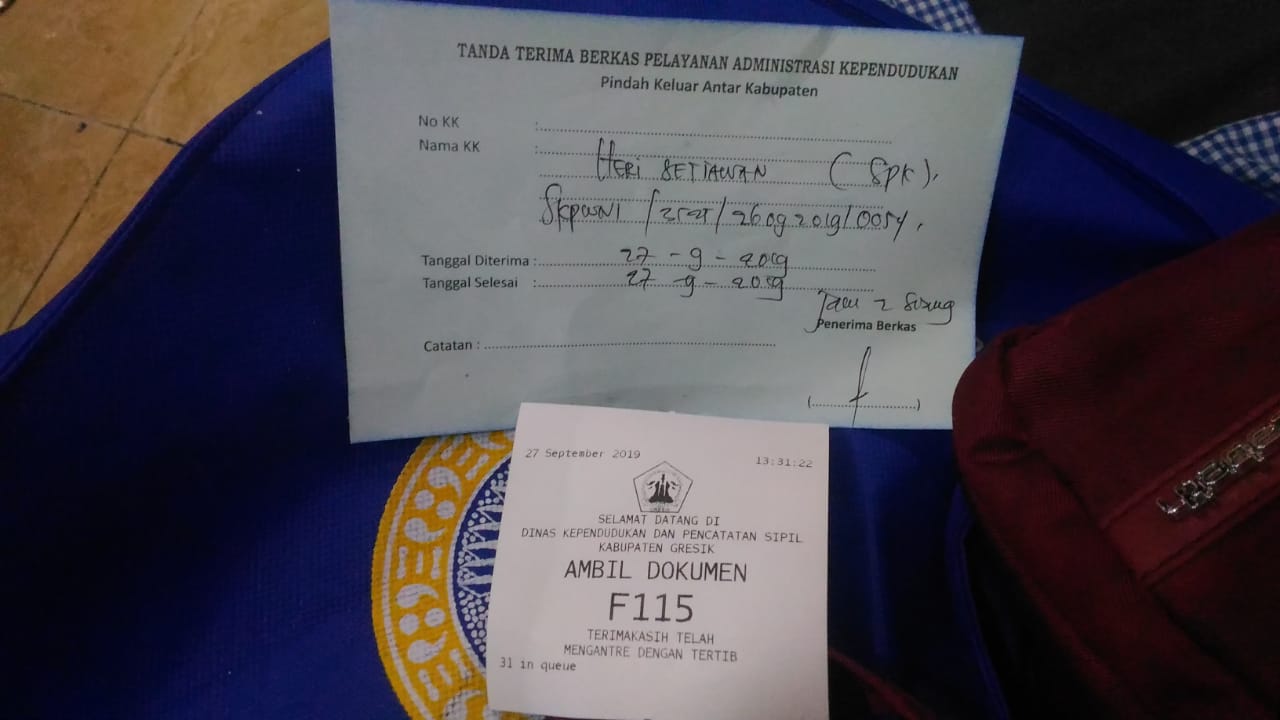 TANDA TERIMA BERKAS PELAYANAN ADMINISTRASI KEPENDUDUKAN
Pindah Keluar Antar Kabupaten
No KK :
Nama KK :
HERI SETIAWAN (SPK).
SKPWNI /3525/26092019/0054,
Tanggal Diterima : 27 - 9 - 2019
Tanggal Selesai : 27 - 9 - 2019
Jam 2 Siang
Penerima Berkas
Catatan :
(....................)
27 September 2019 13:31:22
SELAMAT DATANG DI
DINAS KEPENDUDUKAN DAN PENCATATAN SIPIL
KABUPATEN GRESIK
AMBIL DOKUMEN
F115
TERIMAKASIH TELAH
MENGANTRE DENGAN TERTIB
31 in queue